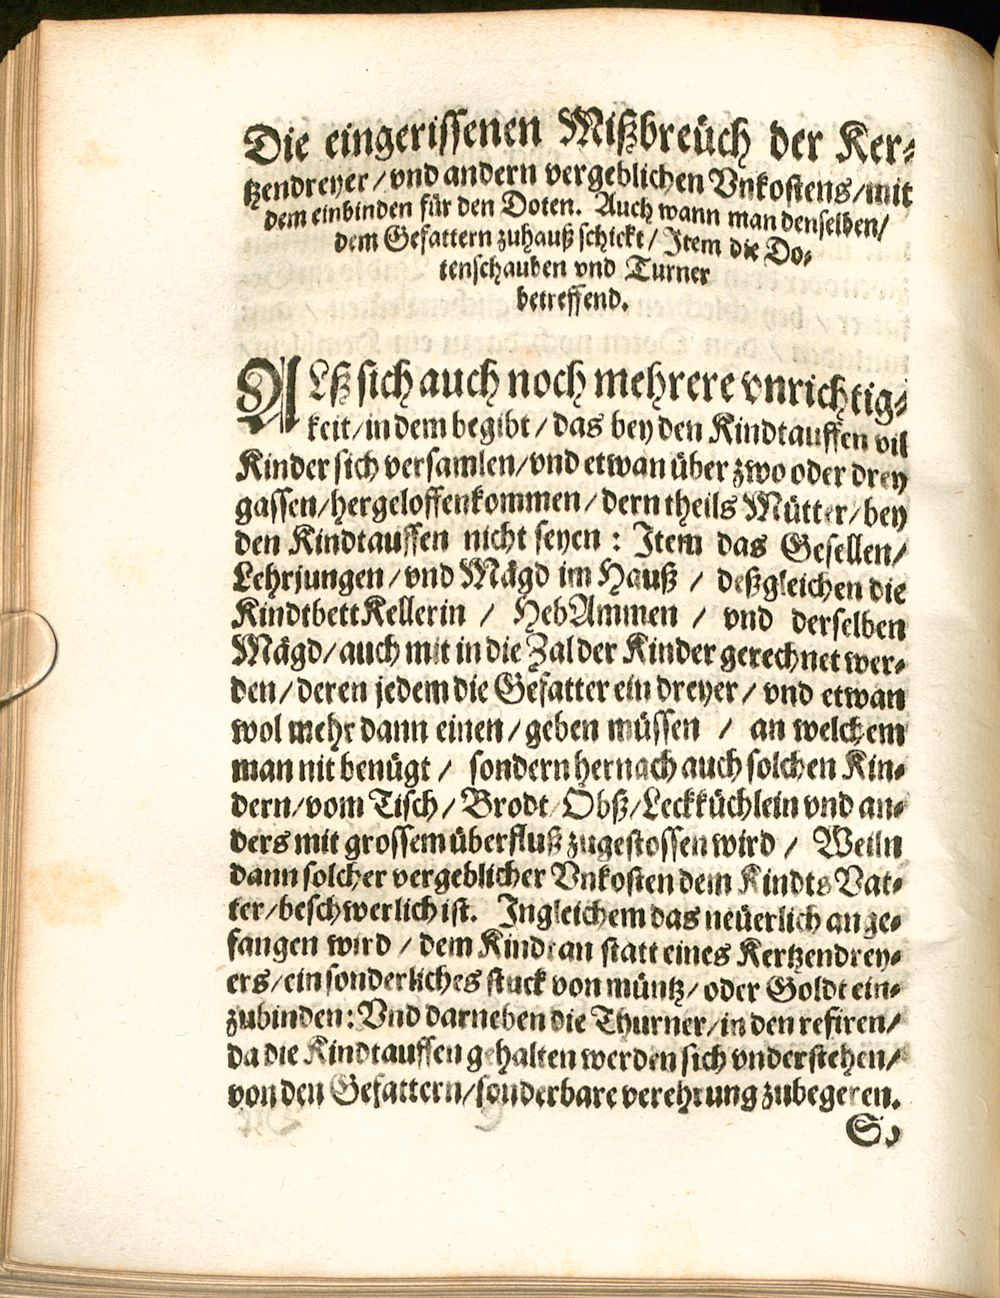 Die eingerissenen Mißbreüch der Ker⸗
tzendreyer/vnd andern vergeblichen Vnkostens/mit
dem einbinden für den Doten. Auch wann man denselben/
dem Gefattern zuhauß schickt/ Item die Do⸗
tenschauben vnd Turner
betreffend.
ALß sich auch noch mehrere vnrichtig⸗
keit/in dem begibt/ das bey den Kindtauffen vil
Kinder sich versamlen/vnd etwan über zwo oder drey
gassen/hergeloffenkommen/ dern theils Mütter/bey
den Kindtauffen nicht seyen: Item das Gesellen/
Lehrjungen/vnd Mägd im Hauß / deßgleichen die
KindtbettKellerin / HebAmmen / vnd derselben
Mägd/auch mit in die Zal der Kinder gerechnet wer⸗
den/deren jedem die Gefatter ein dreyer/ vnd etwan
wol mehr dann einen/geben müssen / an welchem
man nit benügt / sondern hernach auch solchen Kin⸗
dern/vom Tisch/ Brodt/Obß/Leckküchlein vnd an⸗
ders mit grossem überfluß zugestossen wird / Weiln
dann solcher vergeblicher Vnkosten dem Kindts Vat⸗
ter/beschwerlich ist. Ingleichem das neüerlich ange⸗
fangen wird / dem Kind/an statt eines Kertzendrey⸗
ers/ein sonderliches stuck von müntz/oder Goldt ein⸗
zubinden: Vnd darneben die Thurner/in den refiren/
da die Kindtauffen gehalten werden sich vnderstehen/
von den Gefattern/sonderbare verehrung zubegeren.
So